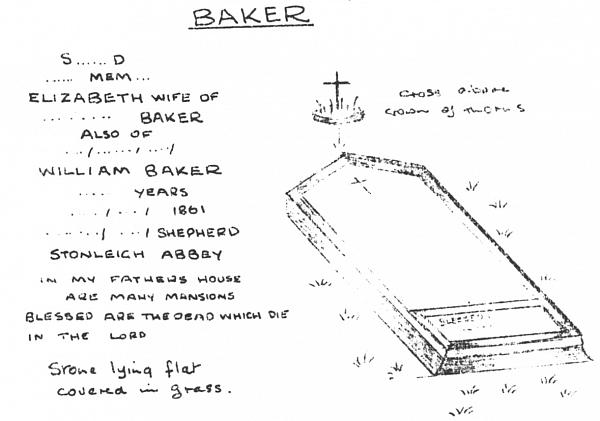 BAKER
S...... D
...... MEM...
ELIZABETH WIFE OF
........ BAKER
ALSO OF
.../....../..../
WILLIAM BAKER
.... YEARS
..../.../ 1861
......./.../ SHEPHERD
STONLEIGH ABBEY
IN MY FATHERS HOUSE
ARE MANY MANSIONS
BLESSED ARE THE DEAD WHICH DIE
IN THE LORD
Stone lying flat
covered in grass.
cross
crown of thorns
BLESSED